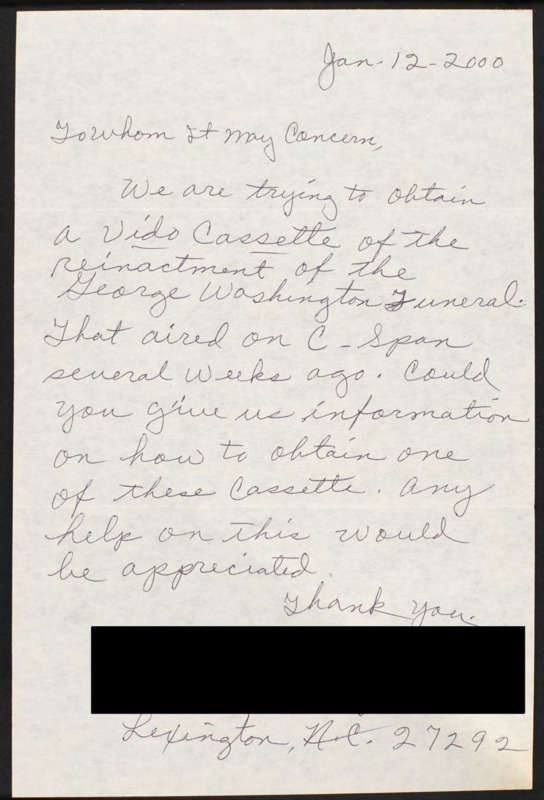 Jan-12-2000
To whom It May Concern,
We are trying to obtain
a Vido Cassette of the
reinactment of the
George Washington Funeral.
That aired on C-Span
several weeks ago. Could
you give us information
on how to obtain one
of these Cassette. Any
help on this would
be appreciated.
Thank You.
Lexington, N.C. 27292